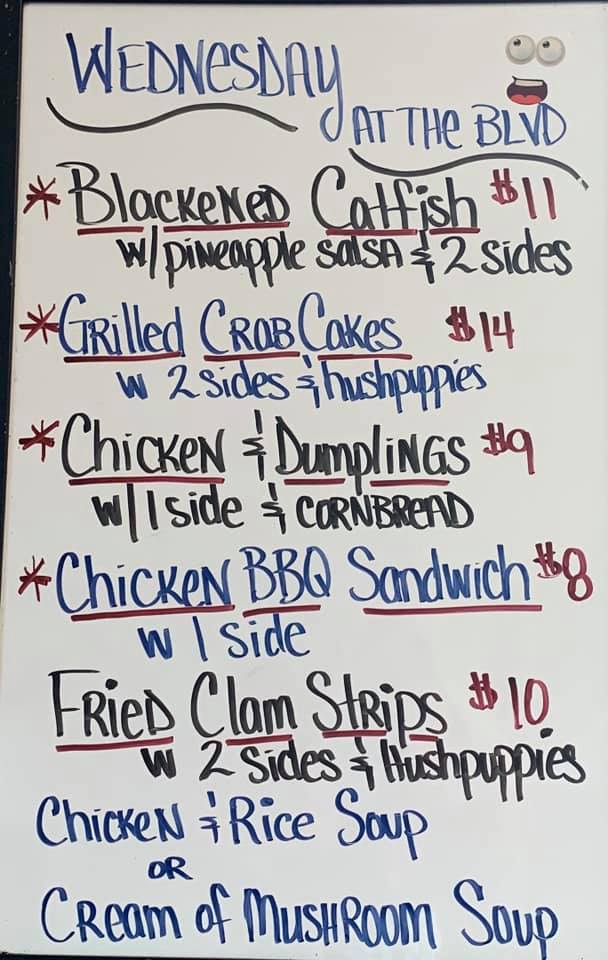 WEDNESDAY
AT THE BLVD
* Blackened Catfish $11
w/pineapple salsa & 2 sides
* Grilled Crab Cakes $14
w 2 sides & hushpuppies
* Chicken & Dumplings $9
w/ 1 side & CORNBREAD
* Chicken BBQ Sandwich $8
w 1 side
Fried Clam Strips $10
w 2 sides & Hushpuppies
Chicken & Rice Soup
OR
Cream of Mushroom Soup